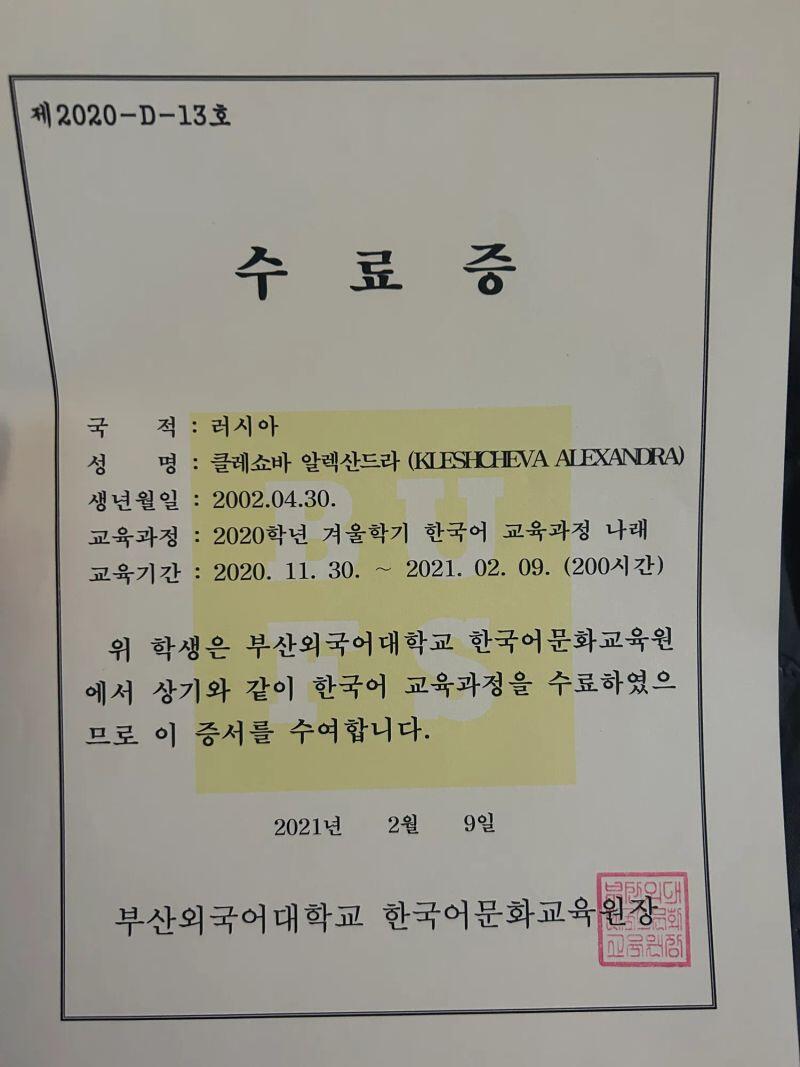 제2020-D-13호
수 료 증
국 적 : 러시아
성 명 : 클레쇼바 알렉산드라 (KLESHCHEVA ALEXANDRA)
생년월일 : 2002.04.30.
교육과정 : 2020학년 겨울학기 한국어 교육과정 나래
교육기간 : 2020. 11. 30. ~ 2021. 02. 09. (200시간)
BU
FS
위 학생은 부산외국어대학교 한국어문화교육원
에서 상기와 같이 한국어 교육과정을 수료하였으
므로 이 증서를 수여합니다.
2021년 2월 9일
부산외국어대학교 한국어문화교육원장